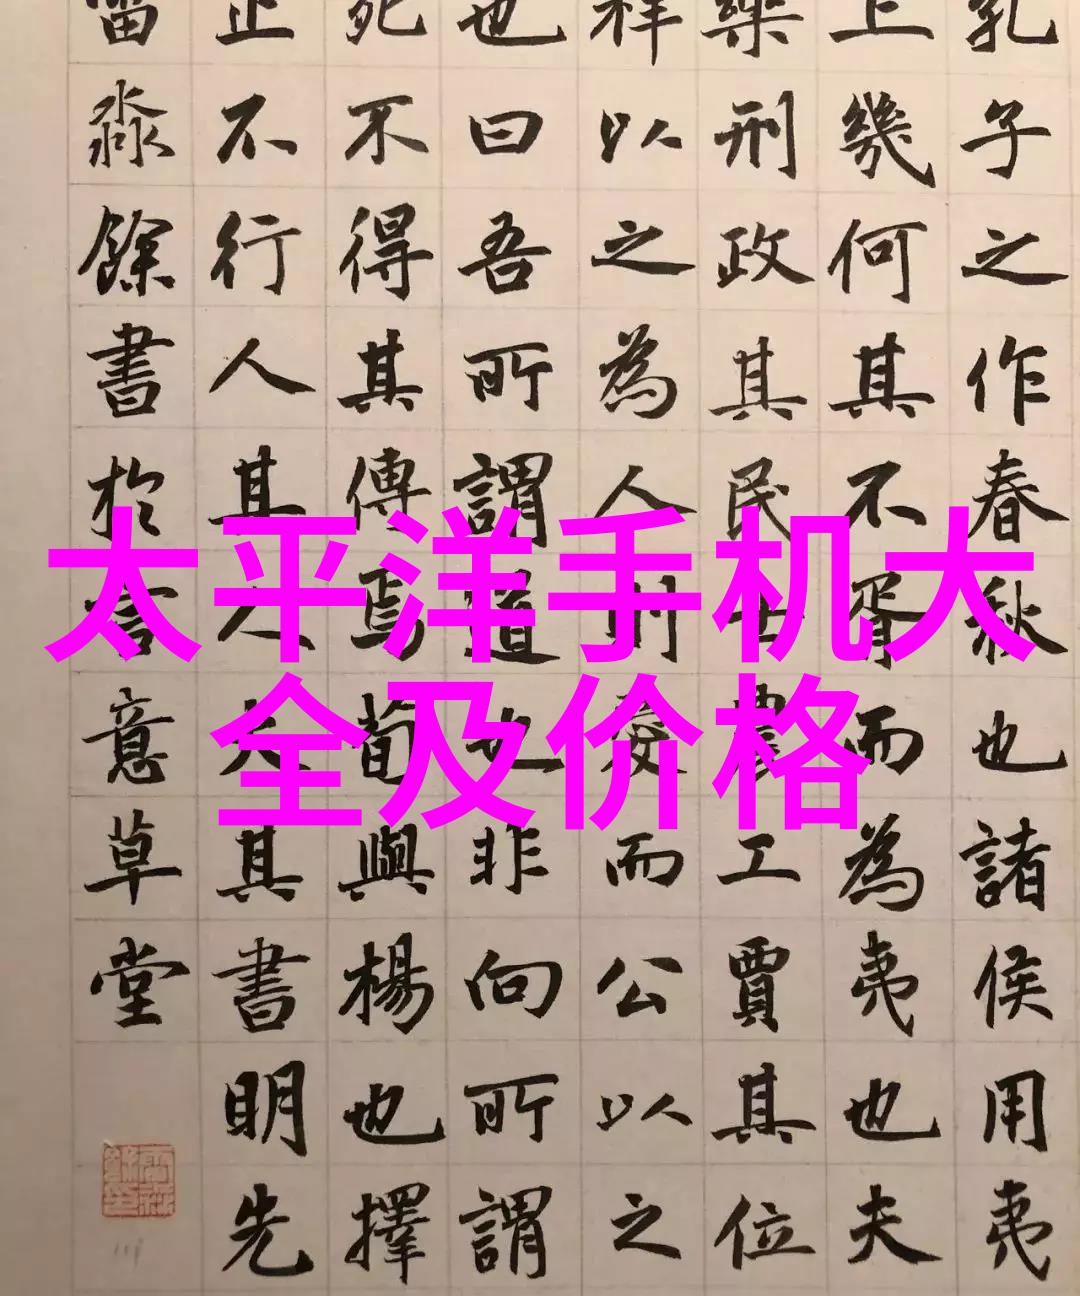 孔子之作春秋也諸侯用夷
上幾何其不胥而為夷也夫
樂刑政其民士農工賈其位
祥以之為人則愛而公以之
也曰吾所謂道也非向所謂
死不得其傳焉荀與楊也擇
止不行人其人火其書明先
淼餘書於言意草堂
太平洋手机大
全及价格